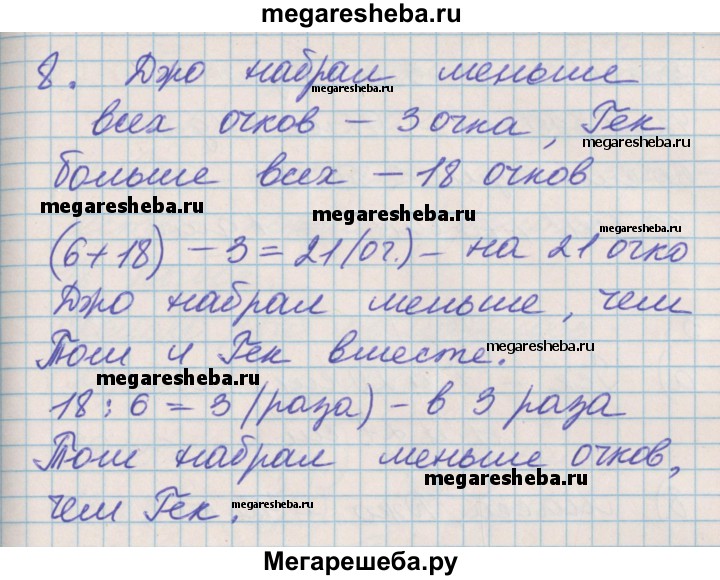 megaresheba.ru
8. Джо набрал меньше
megaresheba.ru
всех очков – 3 очка, Гек
megaresheba.ru
больше всех – 18 очков
megaresheba.ru megaresheba.ru
(6+18) – 3 = 21 (оч.) – на 21 очко
megaresheba.ru
Джо набрал меньше, чем
megaresheba.ru megaresheba.ru
Том и Гек вместе.
megaresheba.ru
megaresheba.ru
18 : 6 = 3 (раза) – в 3 раза
Том набрал меньше очков,
megaresheba.ru
чем Гек.
megaresheba.ru
Мегарешеба.ру